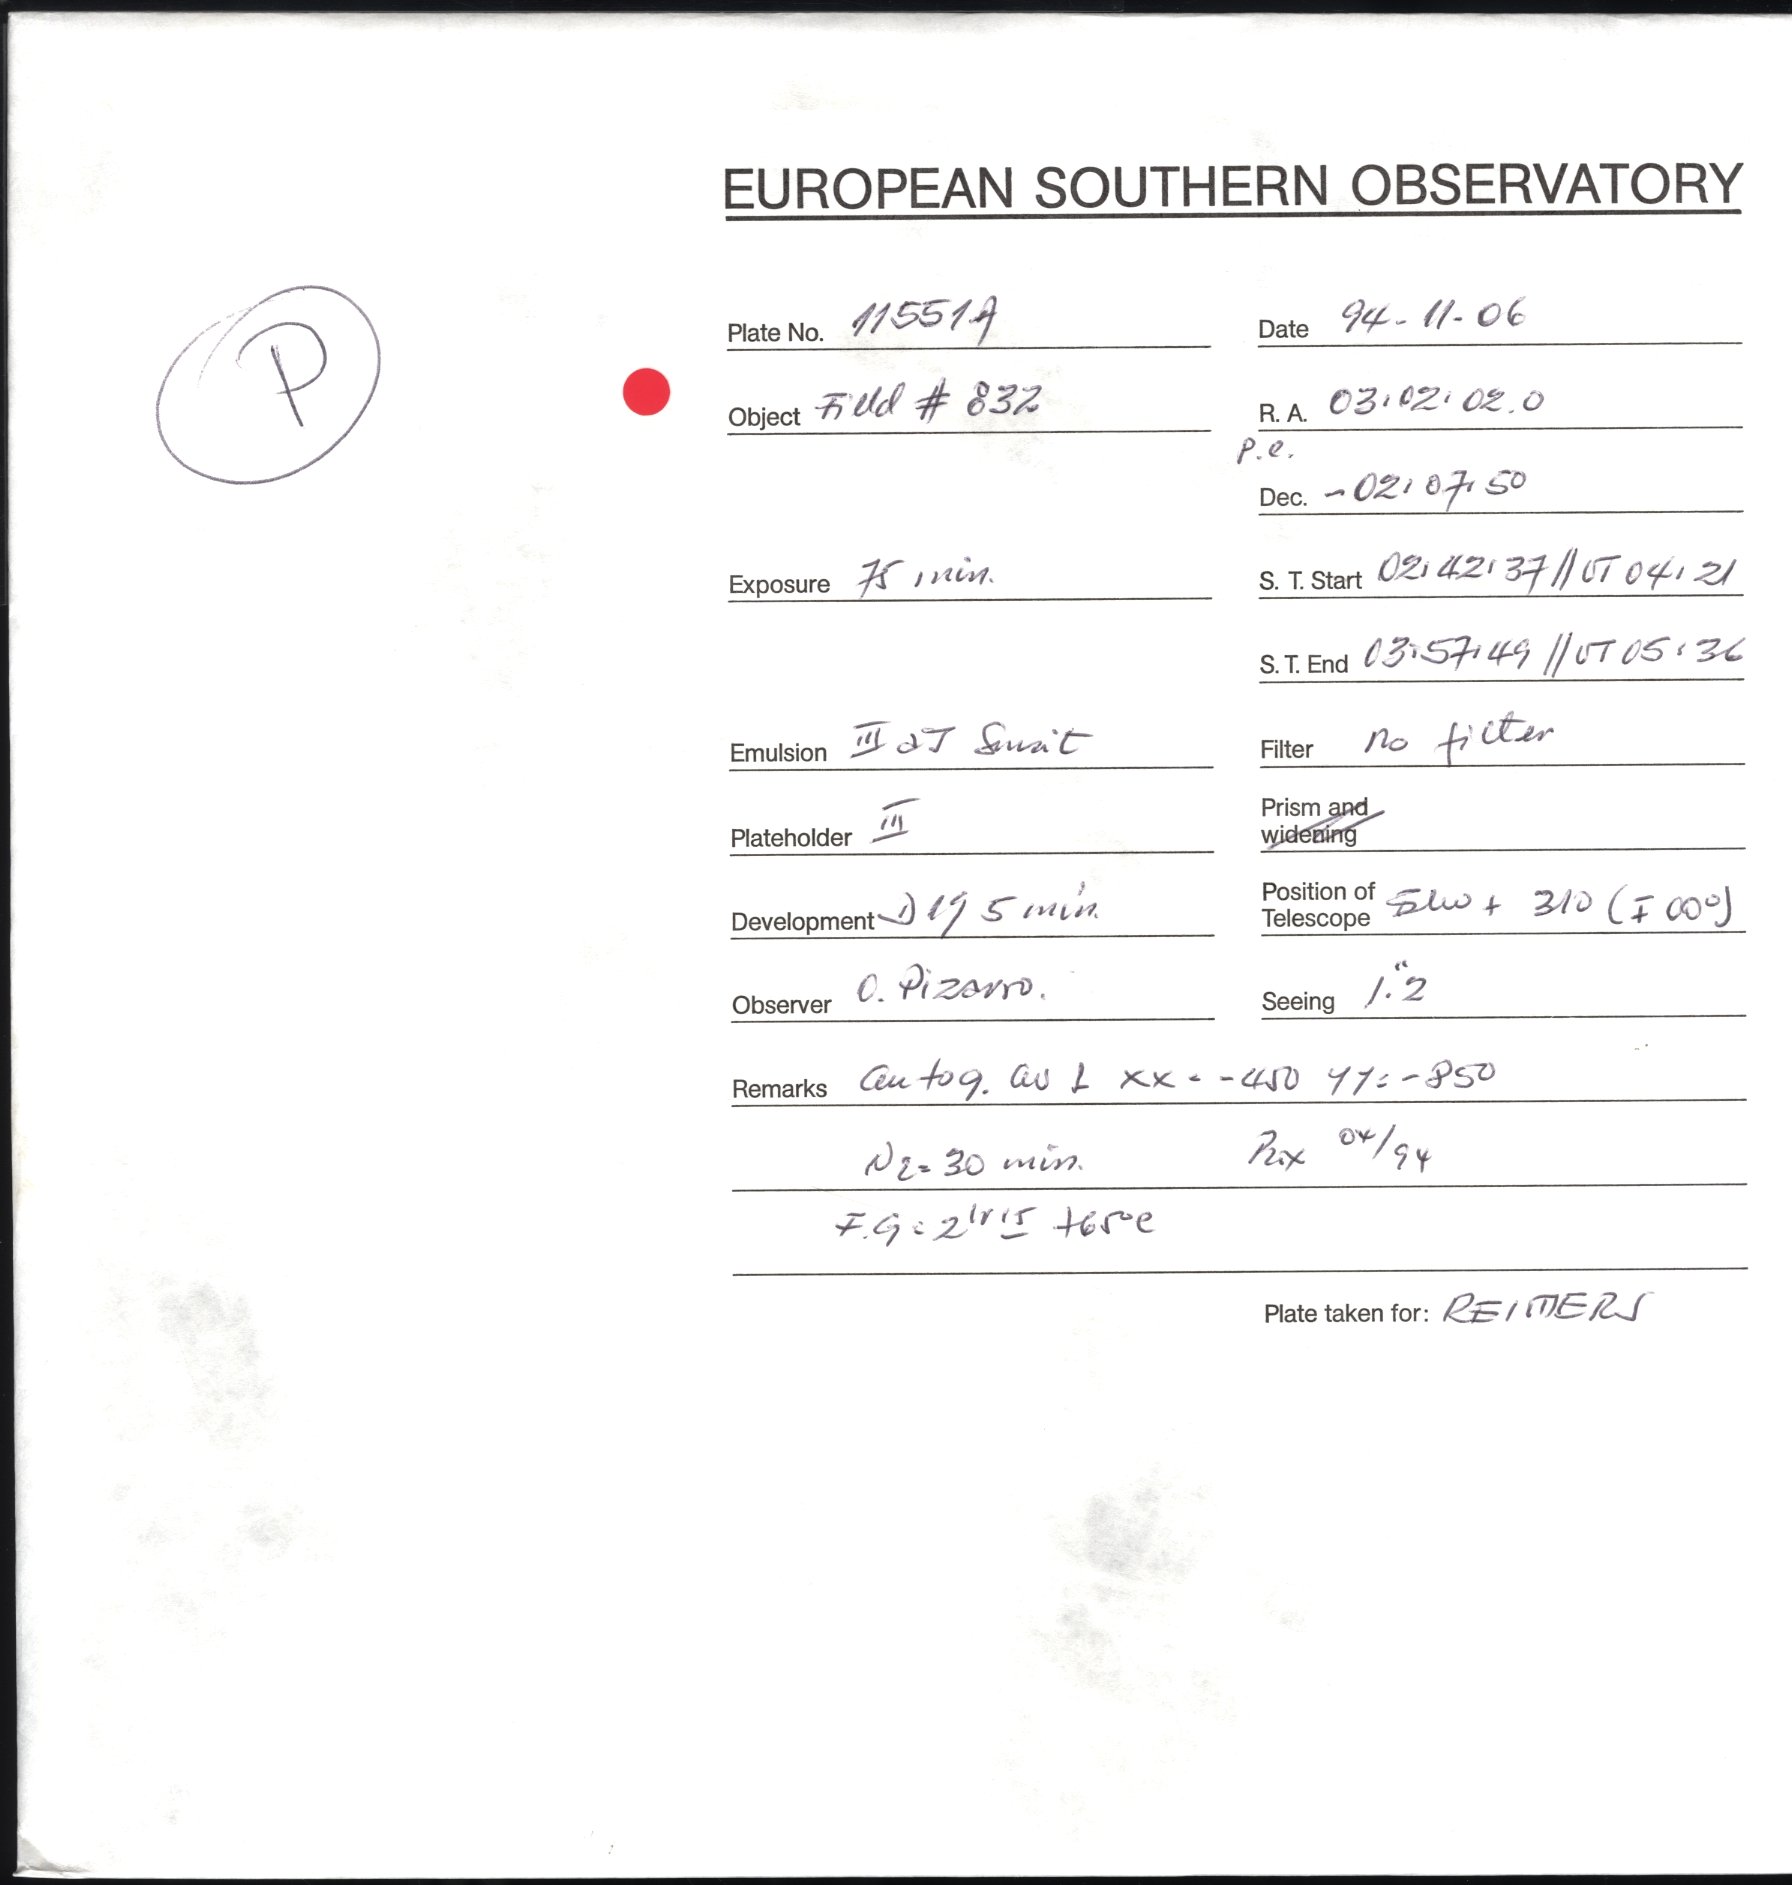 EUROPEAN SOUTHERN OBSERVATORY
P
Plate No. 11551A
Date 94-11-06
Object Field # 832
R. A. 03:02:02.0
p.e.
Dec. -02:07:50
Exposure 75 min.
S. T. Start 02:42:37 // UT 04:21
S. T. End 03:57:49 // UT 05:36
Emulsion III aJ
Filter no filter
Plateholder III
Prism and widening
Development D19 5 min.
Position of Telescope + 310
Observer O. Pizarro.
Seeing 1."2
Remarks autog. xx = -450 yy = -850
N2 = 30 min. 04/94
F.G = +65°C
Plate taken for: REIMERS